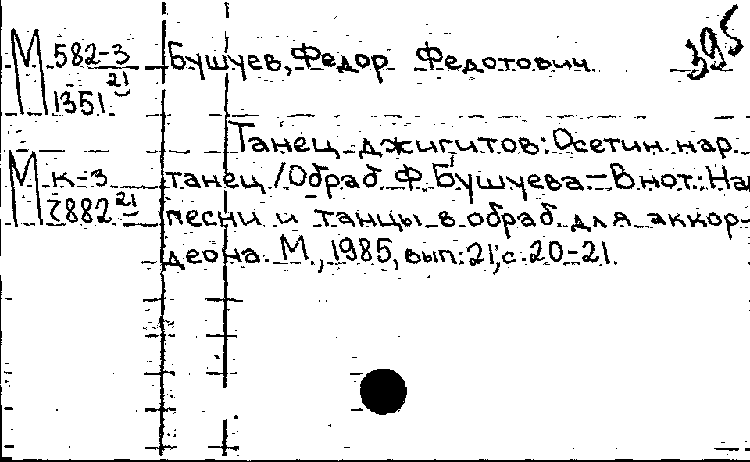 395
М 582-3 21
1351
Бушуев, Федор Федотович
Танец джигитов: Осетин. нар.
М к-3
танец / Обраб. Ф. Бушуева. — В нот.: Нар
2882 21
песни и танцы в обраб. для аккор-
деона. М., 1985, вып. 21, с. 20-21.